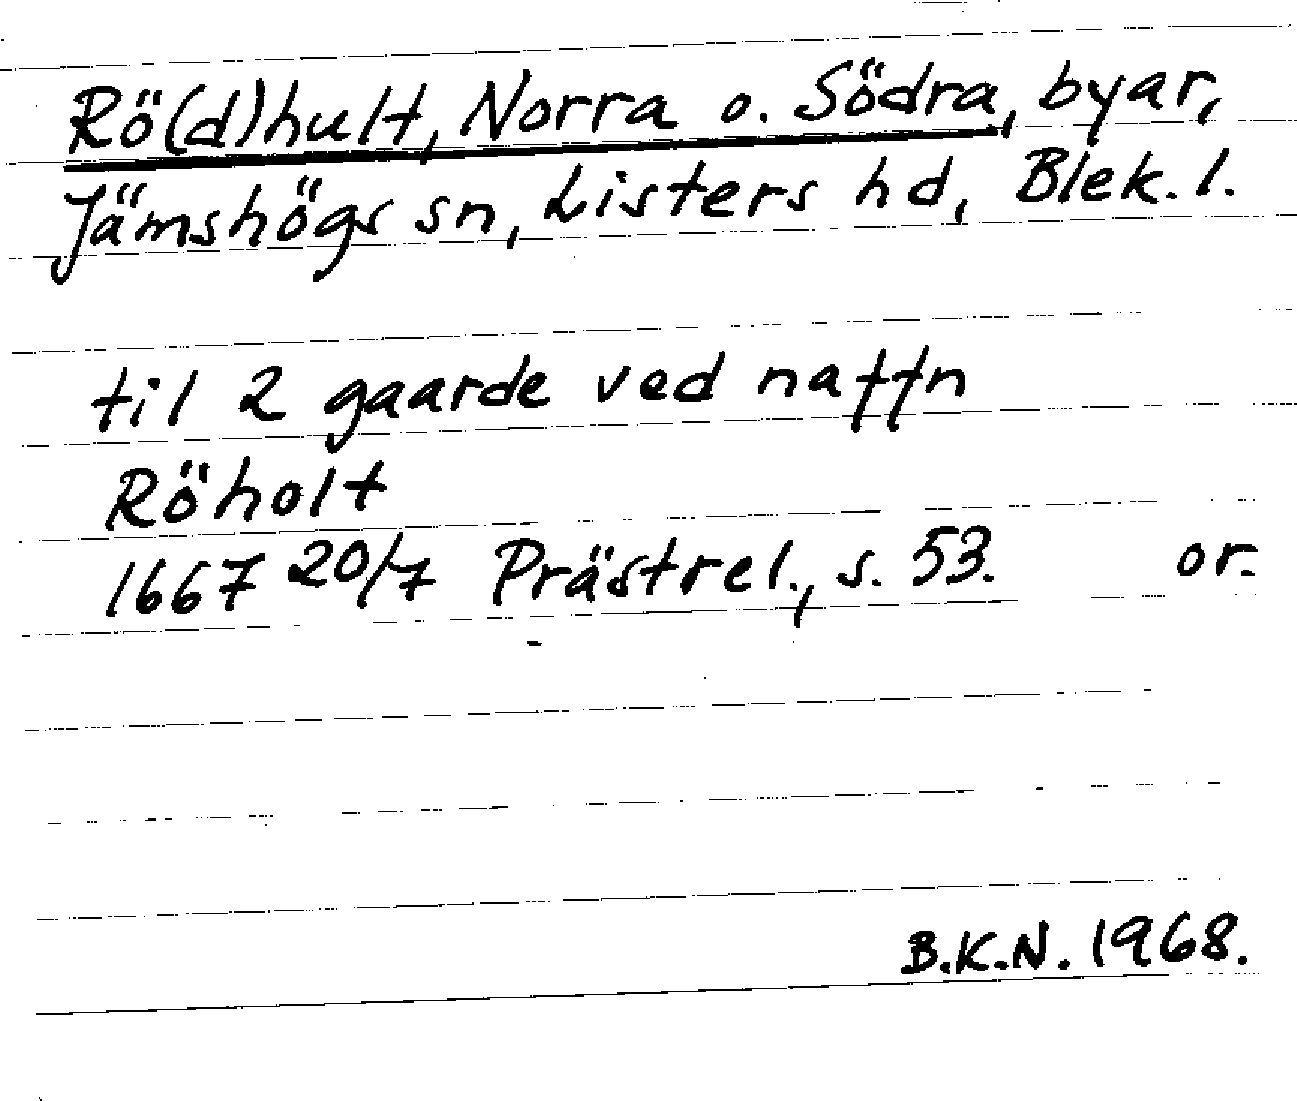 Rö(d)hult, Norra o. Södra, byar,
Jämshögs sn, Listers hd, Blek. l.
til 2 gaarde ved naffn
Röholt
1667 20/7 Prästrel., s. 53. or.
B.K.N. 1968.